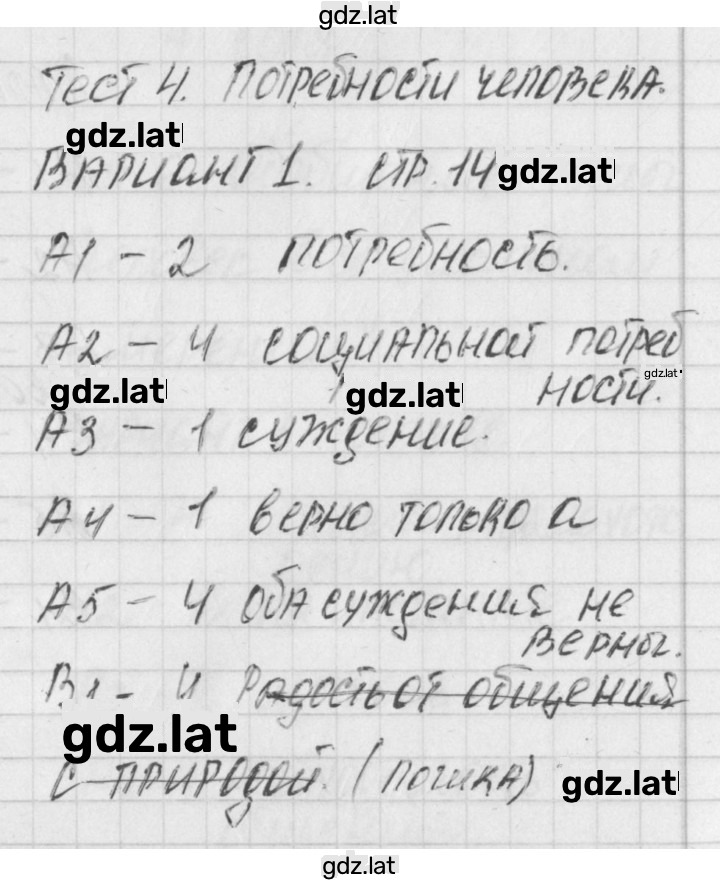 gdz.lat
Тест 4. Потребности человека.
gdz.lat
Вариант 1. стр. 14 gdz.lat
А1 - 2 потребность.
А2 - 4 социальной потреб
gdz.lat
ности.
gdz.lat gdz.lat
А3 - 1 суждение.
А4 - 1 верно только а
А5 - 4 оба суждения не
верны.
В1 - 4 Радость от общения
gdz.lat
с природой. (логика) gdz.lat
gdz.lat